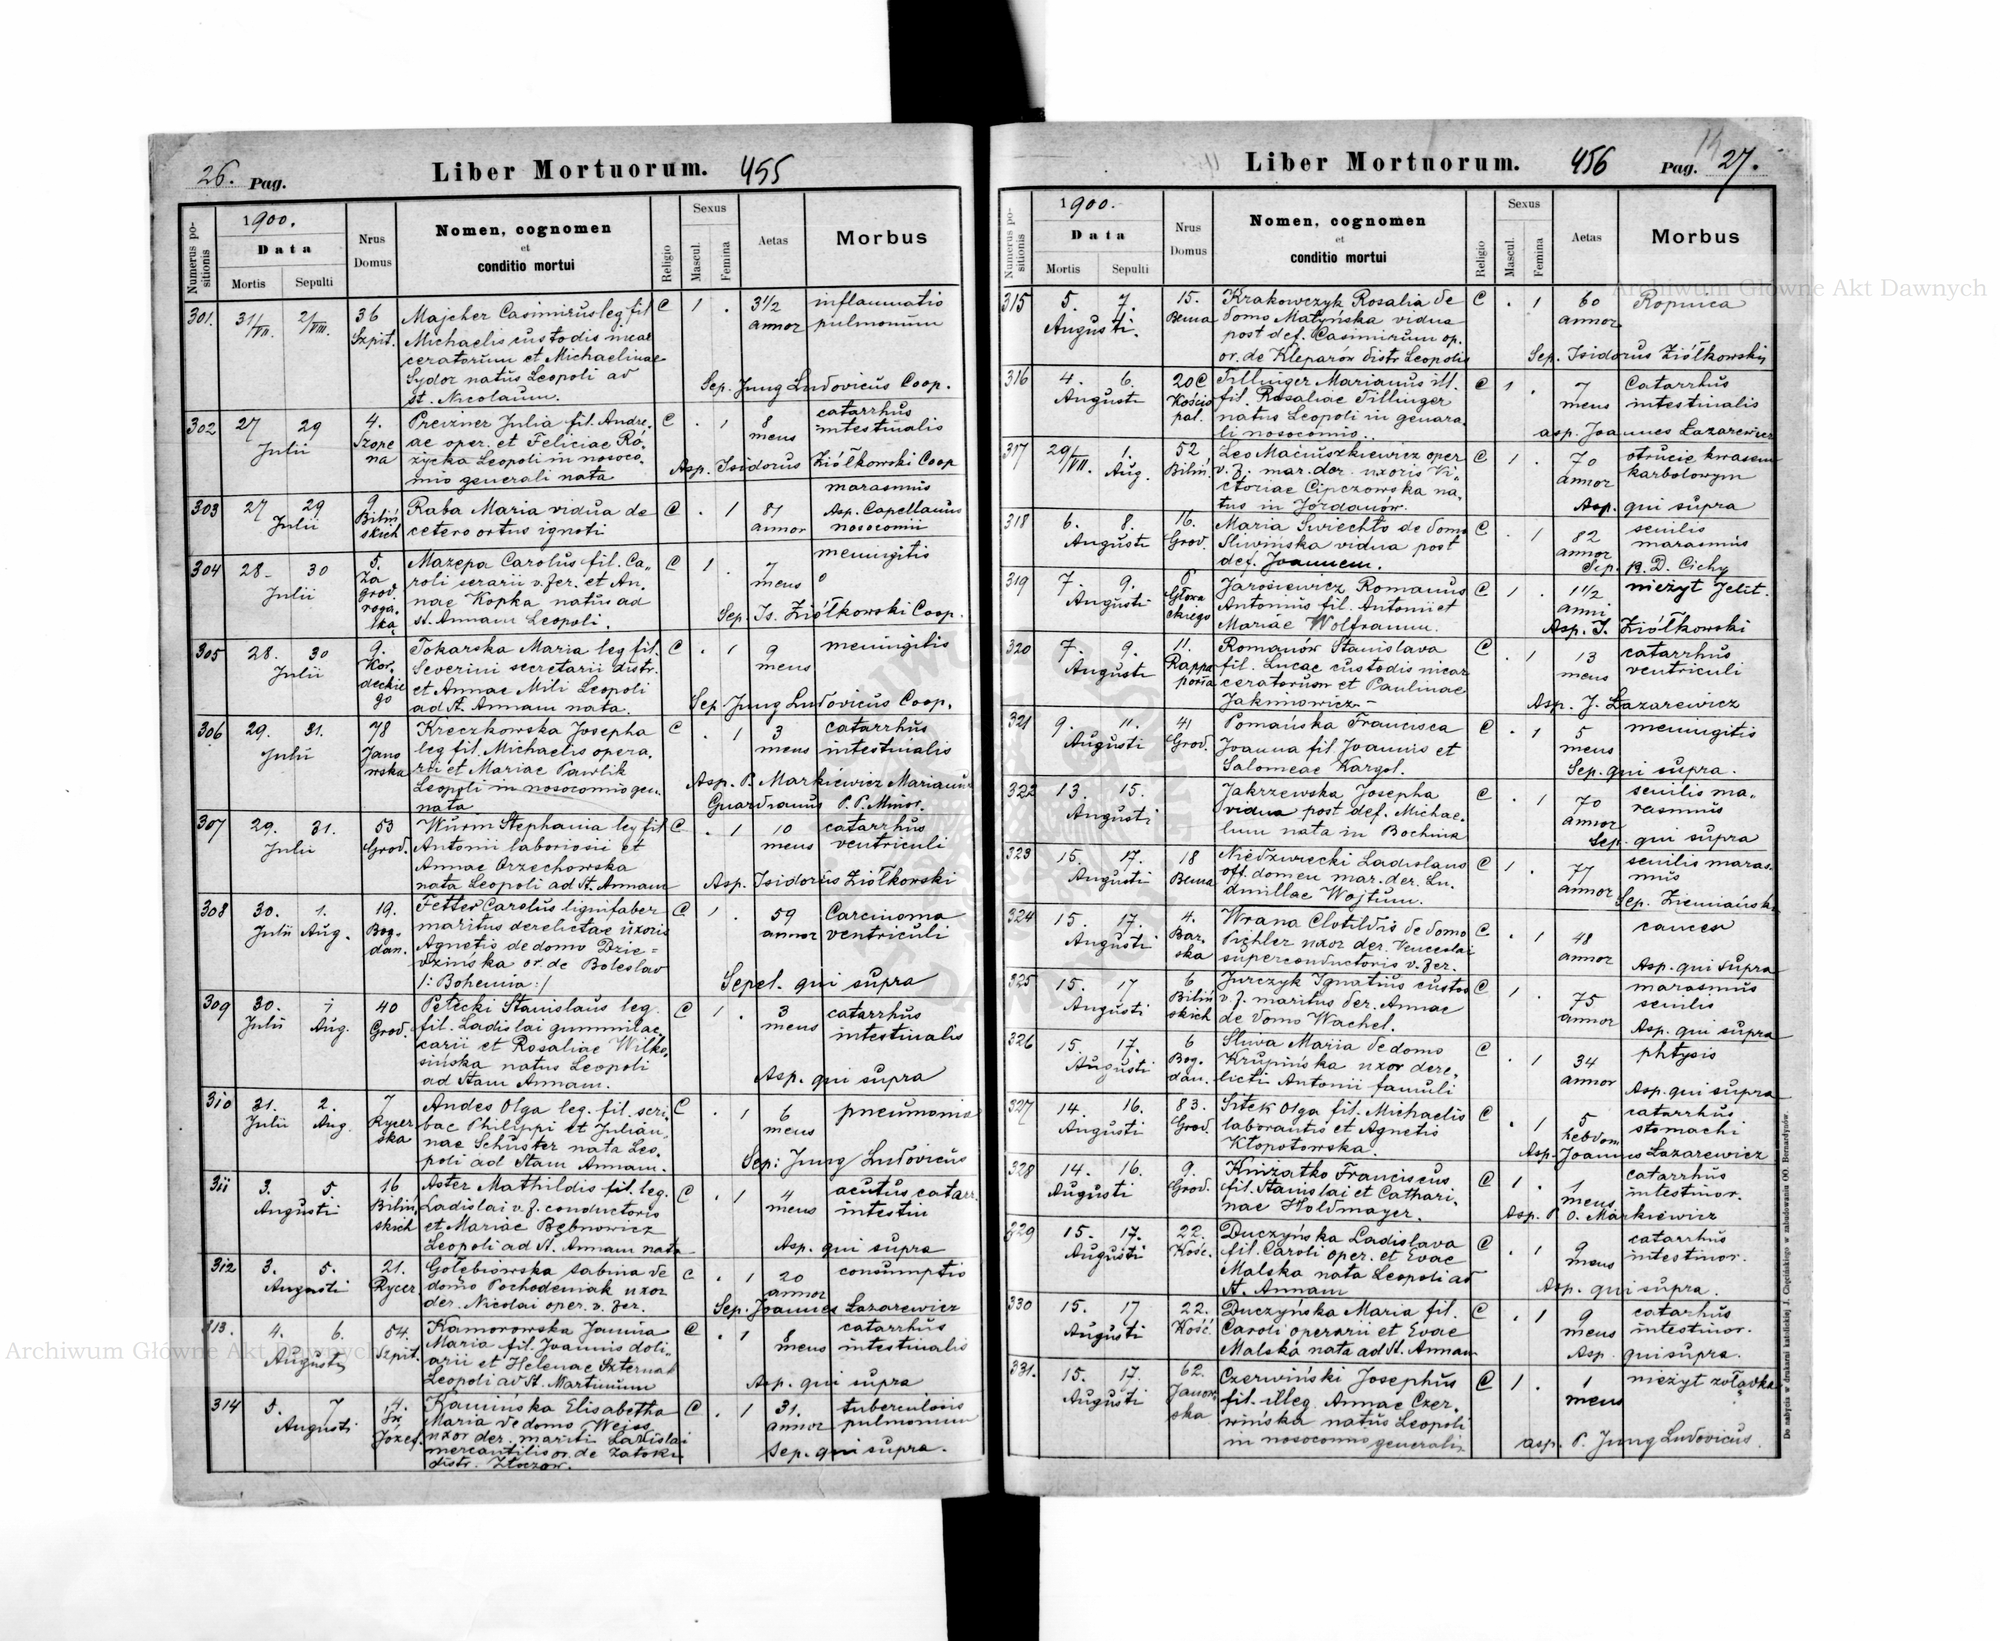 26. Pag.
Liber Mortuorum. 455
Numerus positionis
1900.
Data
Mortis Sepulti
Nrus Domus
Nomen, cognomen
et
conditio mortui
Religio
Sexus
Mascul. Femina
Aetas
Morbus
301. 31/VII. 2/VIII. 36 Szpit. C 1 . 3 1/2 annor inflammatio pulmonum
Majcher Casimirus leg fil
Michaelis custodis incar
ceratorum et Michaelinae
Sydor natus Leopoli ad
st. Nicolaum.
Sep. Jung Ludovicus Coop.
302 27 29 Julii 4. Szope na C . 1 8 mens catarrhus intestinalis
Preizner Julia fil. Andre,
ae oper. et Feliciae Ró,
życka Leopoli in nosoco,
mio generali nata
Asp. Isidorus Ziółkowski Coop
303 27 29 Julii 9 Biliń skich C . 1 81 annor marasmus
Raba Maria vidua de
cetero ortus ignoti
Asp. Capellanus
nosocomii
304 28 30 Julii 5. Za grod roga. tką C 1 . 7 mens meningitis
Mazepa Carolus fil. Ca,,
roli serarii v. fer. et An,
nae Kopka natus ad
st. Annam Leopoli.
Sep. Is. Ziółkowski Coop.
305 28. 30 Julii 9. Kor deckie go C . 1 9 mens meningitis
Tokarska Maria leg fil.
Severini secretarii distr.
et Annae Mili Leopoli
ad st. Annam nata.
Sep. Jung Ludovicus Coop.
306 29. 31. Julii 78 Jano wska C . 1 3 mens catarrhus intestinalis
Kreczkowska Josepha
leg fil. Michaelis opera,
rii et Mariae Pawlik
Leopoli in nosocomio gen.
nata
Asp. P. Markiewicz Marianus
Guardianus P. P. Minor.
307 29. 31. Julii 53 Grod. C . 1 10 mens catarrhus ventriculi
Wurm Stephania leg fil
Antonii laboriosi et
Annae Orzechowska
nata Leopoli ad st. Annam
Asp. Isidorus Ziółkowski
308 30. 1. Julii Aug. 19. Bog- dan. C 1 . 59 annor Carcinoma ventriculi
Fetter Carolus lignifaber
maritus derelictae uxoris
Agnetis de domo Dzie=
dzińska or. de Boleslav
/: Bohemia :/
Sepel. qui supra
309 30. 1 Julii Aug. 40 Grod. C 1 . 3 mens catarrhus intestinalis
Petecki Stanislaus leg.
fil. Ladislai
carii et Rosaliae Wilko,
sińska natus Leopoli
ad stam Annam.
Asp. qui supra
310 31. 2. Julii Aug. 7 Rycer ska C . 1 6 mens pneumonia
Andes Olga leg. fil. scri,
bae Philippi et Julian,
nae Schuster nata Leo,
poli ad stam Annam.
Sep: Jung Ludovicus
311 3. 5. Augusti 16 Biliń, skich C . 1 4 mens acutus catarr. intestin
Aster Mathildis fil. leg.
Ladislai v. f. conductoris
et Mariae Bębnowicz
Leopoli ad st. Annam nata
Asp. qui supra
312 3. 5. Augusti 21. Rycer C . 1 20 annor consumptio
Gołębiowska Sabina de
domo Pochodeniak uxor
der. Nicolai oper. v. fer.
Sep. Joannes Lazarewicz
313. 4. 6. Augusti 54. Szpit. C . 1 8 mens catarrhus intestinalis
Kamorowska Janina
Maria fil. Joannis doli,
arii et Helenae Szternal
Leopoli ad st. Martinum
Asp. qui supra
314 5. 7 Augusti 4. Św. Józef. C . 1 31. annor tuberculosis pulmonum
Kamińska Elisabetha
Maria de domo Weiss
uxor der. mariti Ladislai
mercantilis or. de Zatoku
distr. Złoczow.
Sep. qui supra.
Liber Mortuorum. 456
Pag. 27.
Numerus positionis
1900.
Data
Mortis Sepulti
Nrus Domus
Nomen, cognomen
et
conditio mortui
Religio
Sexus
Mascul. Femina
Aetas
Morbus
315 5. 7. Augusti. 15. Bema C . 1 60 annor Ropnica
Krakowczyk Rosalia de
domo Matyńska vidua
post def. Casimirum op.
or. de Kleparów distr Leopolis
Sep. Isidorus Ziółkowski
316 4. 6. Augusti 20C Kościo pal. C 1 . 7 mens Catarrhus intestinalis
Tillinger Marianus ill.
fil. Rosaliae Tillinger
natus Leopoli in genera
li nosocomio..
asp. Joannes Lazarewicz
317 29/VII. 1. Aug. 52 Biliń. C 1 . 70 annor otrucie kwasem karbolowym
Leo Maciuszkiewicz oper
v. f. mar. der. uxoris Vi,
ctoriae Cipczowska na,
tus in Jordanów.
Asp. qui supra
318 6. 8. Augusti 16. Grod. C . 1 82 annor senilis marasmus
Maria Swiechło de domo
Sliwińska vidua post
def. Joannem.
Sep. P. D. Cichy
319 7. 9. Augusti Głowa ckiego C 1 . 1 1/2 anni nieżyt jelit.
Jarosiewicz Romanus
Antonius fil. Antonii et
Mariae Wolframm.
Asp. I. Ziółkowski
320 7. 9. Augusti 11. Rappa porta C . 1 13 mens catarrhus ventriculi
Romanów Stanislava
fil. Lucae custodis incar
ceratorum et Paulinae
Jakimowicz.-
Asp. J. Lazarewicz
321 9. 11. Augusti 41 Grod. C . 1 5 mens meningitis
Pomańska Francisca
Joanna fil Joannis et
Salomeae Kargol.
Sep. qui supra.
322 13. 15. Augusti C . 1 70 annor senilis ma, rasmus
Jakrzewska Josepha
vidua post def. Michae,
lem nata in Bochnia
Sep. qui supra
323 15. 17. Augusti 18 Bema C 1 . 77 annor senilis maras- mus
Niedzwiecki Ladislaus
off. domen mar. der. Lu,
dmillae Wojtum.
Sep. Ziemiański
324 15. 17. Augusti 4. Bar- ska C . 1 48 annor cancer
Wrana Clotildis de domo
Pichler uxor der. Venceslai
superconductoris v. fer.
Asp. qui supra
325 15. 17 Augusti 6 Biliń skich C 1 . 75 annor marasmus senilis
Jurczyk Ignatius custos
v. f. maritus der. Annae
de domo Wachel.
Asp. qui supra
326 15. 17. Augusti 6 Bog- dan. C . 1 34 annor phtysis
Sliwa Maria de domo
Krupińska uxor dere,
licti Antonii famuli
Asp. qui supra
327 14. 16. Augusti 83. Grod. C . 1 5 hebdom catarrhus stomachi
Sitek Olga fil. Michaelis
laborantis et Agnetis
Kłopotowska.
Asp. Joannes Lazarewicz
328 14. 16. Augusti 9. Grod. C 1 . 1 mens catarrhus intestinor.
Kniżatko Franciscus
fil. Stanislai et Cathari,
nae Holdmayer.
Asp. P. O. Markiewicz
329 15. 17. Augusti 22. Kość. C . 1 9 mens catarrhus intestinor.
Duczyńska Ladislava
fil. Caroli oper. et Evae
Malska nata Leopoli ad
st. Annam
Asp. qui supra.
330 15. 17 Augusti 22. Kość. C . 1 9 mens catarrhus intestinor.
Duczyńska Maria fil.
Caroli operarii et Evae
Malska nata ad st. Annam
Asp. qui supra.
331. 15. 17. Augusti 62. Janow, ska C 1 . 1 mens nieżyt żołądka
Czerwiński Josephus
fil. illeg. Annae Czer,
wińska natus Leopoli
in nosocomio generali
asp. P. Jung Ludovicus.
Do nabycia w drukarni katolickiej J. Chęcińskiego w zabudowaniu OO. Bernardynów.
Archiwum Główne Akt Dawnych
Archiwum Główne Akt Dawnych